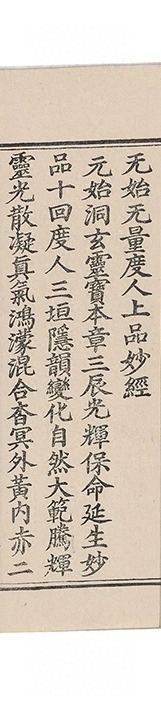 无始无量度人上品妙經
元始洞玄靈寶本章三辰光輝保命延生妙
品十回度人三垣隱韻變化自然大範騰輝
靈光散凝真氣鴻濛混合杳冥外黃內赤二